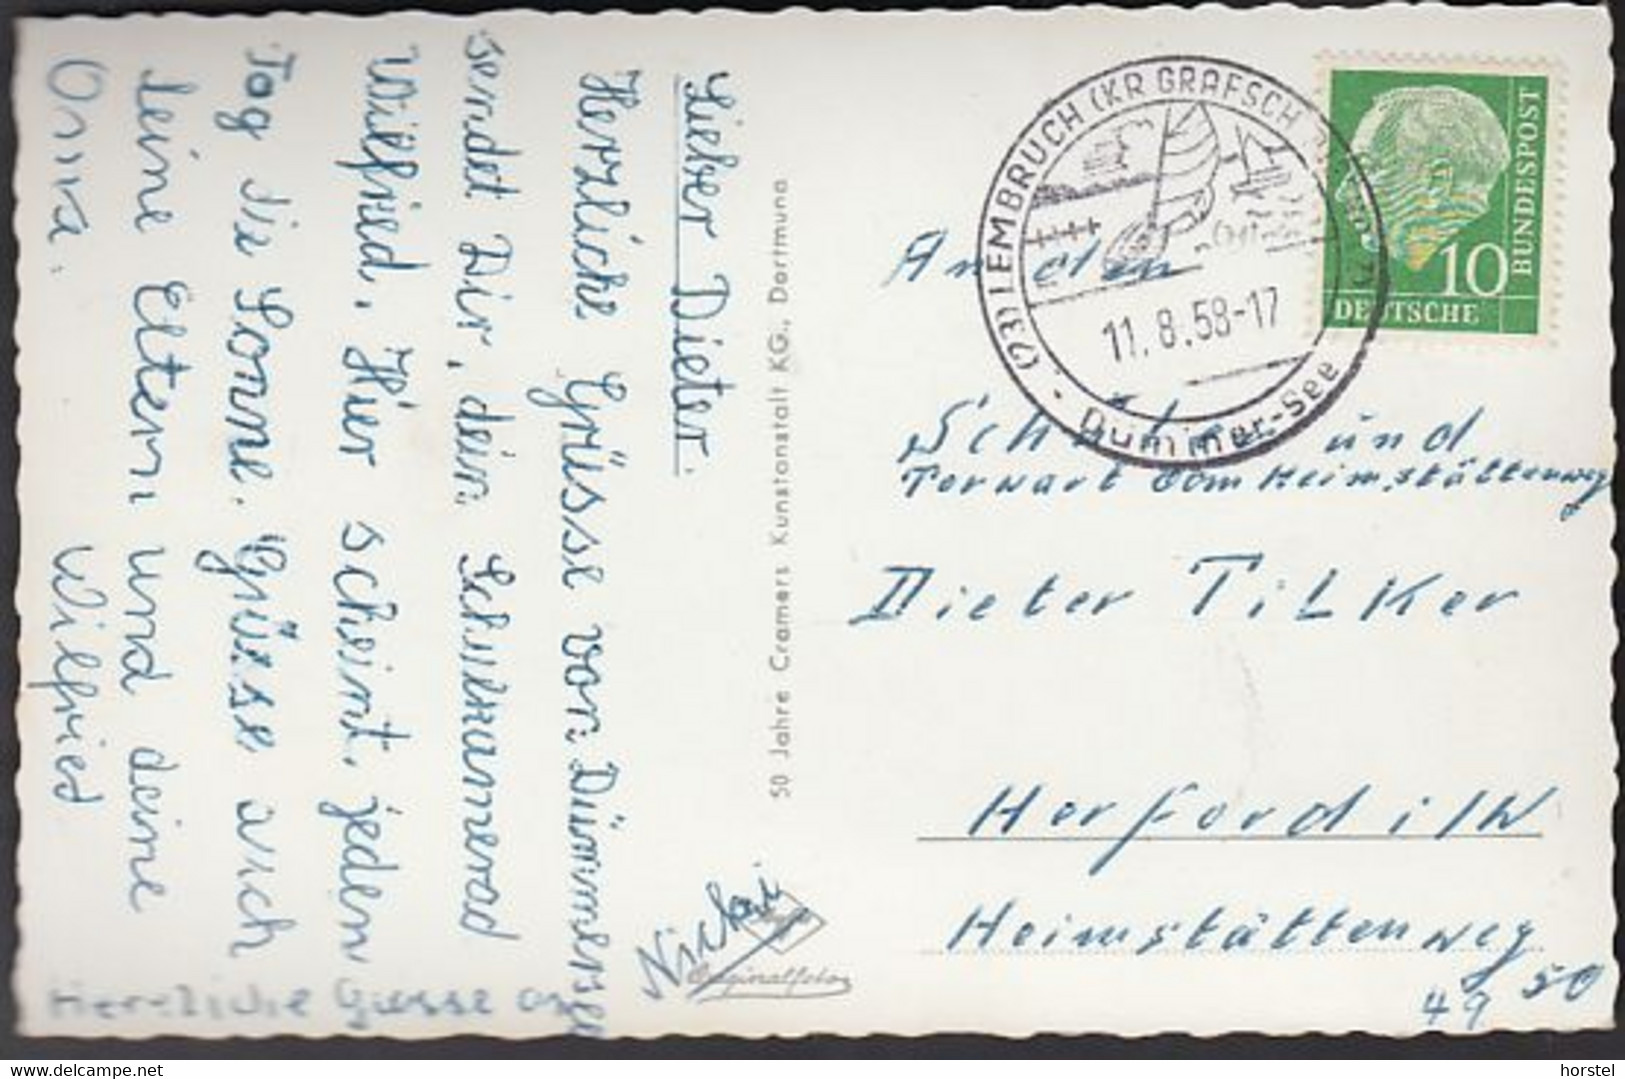 Lieber Dieter.
Herzliche Grüsse von Dümmersee
sendet Dir, dein Schulkamerad
Wilfried. Hier scheint jeden
Tag die Sonne. Grüsse auch
deine Eltern und deine
Oma. Wilfried
Herzliche Grüsse
50 Jahre Cramers Kunstanstalt KG., Dortmund
Originalfoto
(23) LEMBRUCH (KR GRAFSCH
11.8.58-17
Dümmer-See
10
DEUTSCHE
BUNDESPOST
An den
Schüler und
Torwart vom Heimstättenweg
Dieter Tilker
Herford i/W
Heimstättenweg
49 50
horstel
www.delcampe.net